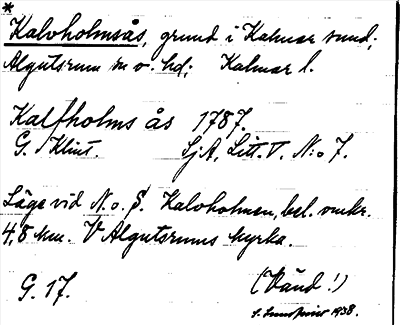 *
Kalvholmsås, grund i Kalmar sund;
Algutsrum sn o. hd; Kalmar l.
Kalfholms ås 1787.
G. Klint. SjA, Litt. V. N:o 7.
Läge vid N. o. S. Kalvholmen, bel. omkr.
4,8 km. V Algutsrums kyrka.
G. 17. (Vänd!)
1938.